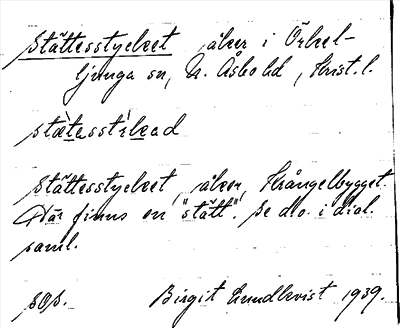 Stättesstycket åker i Örkel-
ljunga sn, N. Åsbo hd, Krist. l.
stätasstikad
Stättesstycket, åker, Krångelbygget.
Där finns en "stätt". Se d.o. i dial.
saml.
sOs. Birgit Lundkvist 1939.